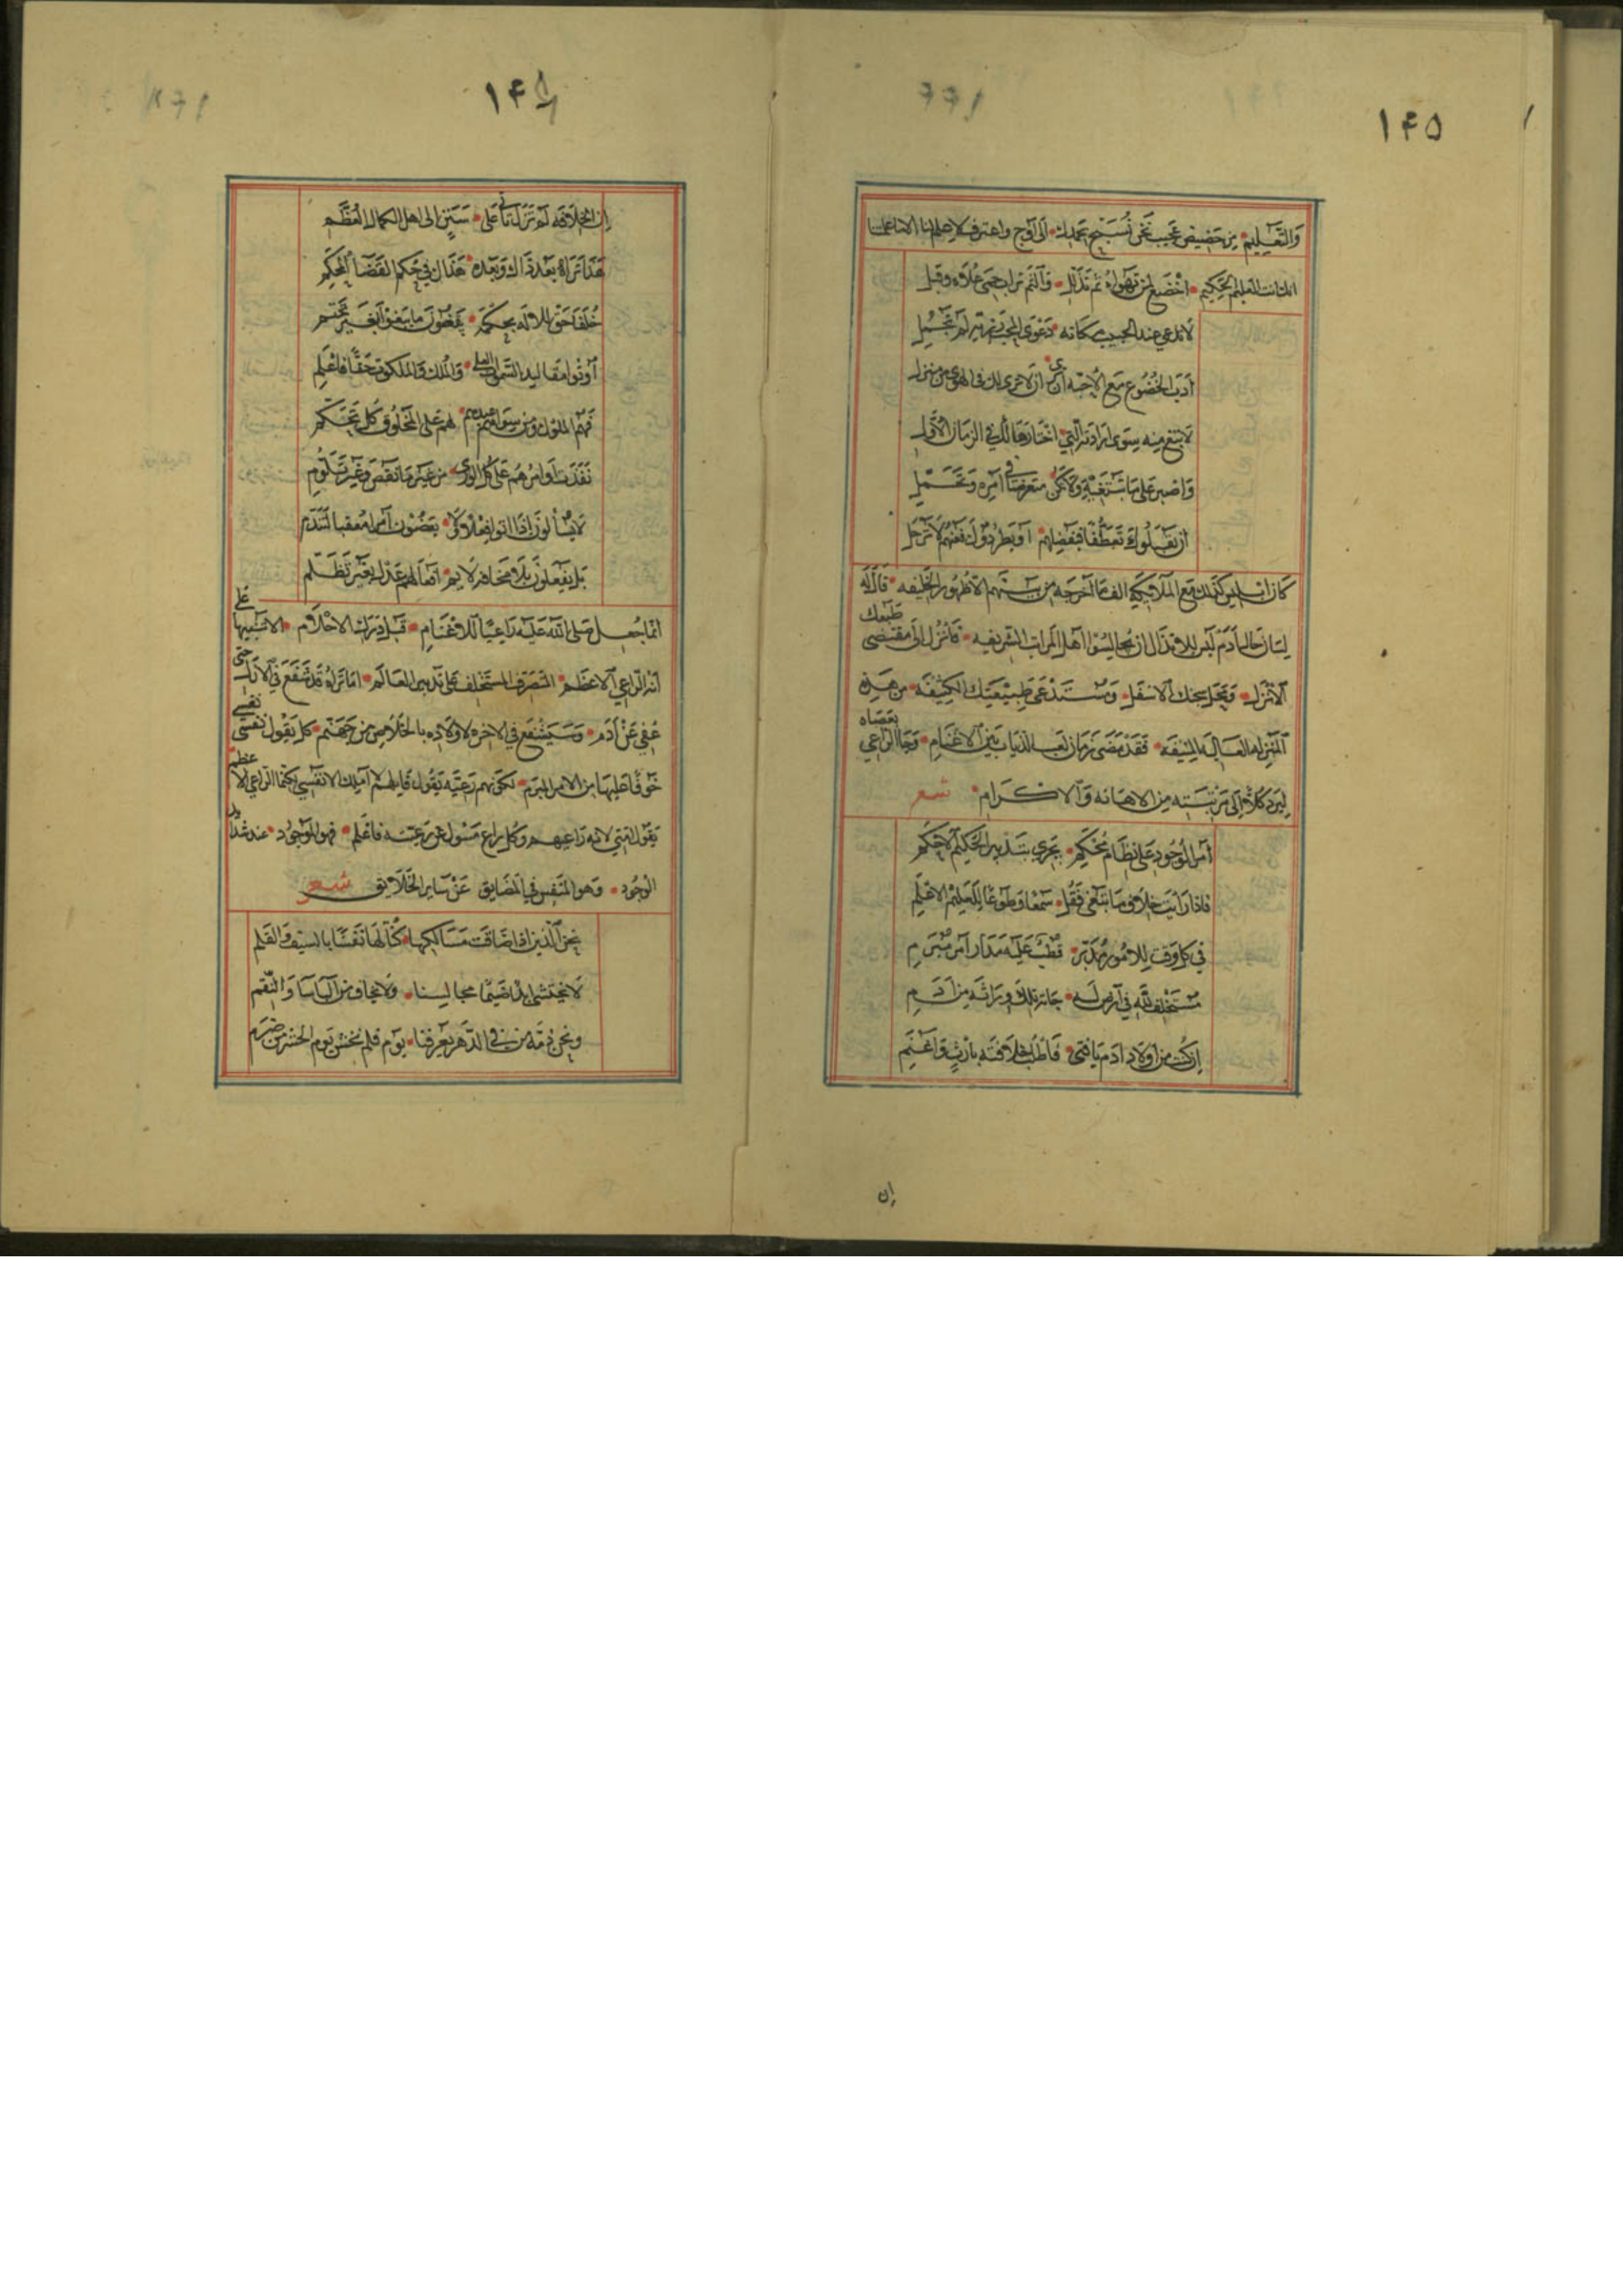 ١٤٥
وَالتَّعَلِيمِ مِن حَضِيضِ عُجْبِ نَحْنُ نُسَبِّحُ بِحَمْدِكَ الى اَوْجِ واعترف لا علم لنا الا ما علمتنا
انك انت العليم الحكيم اخْضَعْ لِمَن تَهْوَاهُ ثم تَذَلَّلِ وَالْثَم تراب حِمَى عُلَاه وقَبِّلِ
لا تدعى عند الحبيب مكانه دَعْوَى المحب مزية لم تَجْمُلِ
اَدَبُ الخُضُوعِ مَعَ الاحبه
لا تبتغ منه سِوَى ارادته التي اختارها لك في الزمان الاول
وَاصْبِر عَلَى مَا
ان يَقْبَلُوكَ تَعَطُّفًا فبفضلهم اَو يَطْرُدُوكَ فَعَنْهُم لا تَرْحَل
كان ابليس كذلك مع الملائكة الفه ما اخرجه من بينهم الا ظهور الخليفه قَالَ لَهُ
لسان حال آدم لَيْسَ للانذال ان يُجالِسُوا اهل المراتب الشريفه فَانْزِل الى مقتضى طبعك
الانزل ومحل سجنك الاسفل وَمُسْتَدْعَى طَبِيعَتِكَ الكثيفه من هذه
المنزله العاليه المنيفه فَقَدْ مَضَى زمان لعب الذياب بين الاغنام وَجَا الراعي بعصاه
ليرد كلا الى مرتبته من الاهانه والاكرام شعر
اَمر الوُجُودِ عَلى نِظَامٍ مُحْكَمِ يَجْرِي بتدبير الحكيم الاحكم
فاذا رايت خلاف ما تبتغى فَقُل سَمْعًا وَطَوْعًا للعليم الاعلم
في كل وقت للامور مُدَبِّر قُطْبٌ عَلَيْه مَدَارُ اَمر مُبْرَمِ
مُسْتَخْلَف لله في ارض له حَازَ تلك وِرَاثَه من آدَمِ
اِن كنت من اولاد آدم يا فتى فَاطْلُب خِلَافَتَه بارثٍ وَاغْنَمِ
اِن
١٤٦
اِنَّ الخلافه لم تَزَل تاتى عَلى سَنَنٍ الى اهل الكمال المُعَظَّم
هَذَا تَرَاهُ بَعْدَ ذَاكَ وَبَعْدَهُ هَذَاكَ فِي حُكْمِ القَضَا المُحْكَمِ
خُلَفَا حَقّ للاله بحكمة يَقْضُونَ ما يبغون
اُوتُوا مَقَاليد السموات العلى وَالْمُلْك وَالملكوت حَقًّا فاعْلَمِ
فَهُمُ الملوك ومن سِوَاهُم عبيدهم لهم عَلَى المَخْلُوقِ كل تَحَكُّم
نَفَذَت اَوَامِرُهُم عَلَى كُلِّ الورى من غير ما نقص وَغَيْرِ تَلَوُّمِ
لَا يُسْأَلُونَ اذَا اتوا فعْلًا ولا
بَل يَفْعَلُون بِلَا مخافة لَايِم اَفعالهم عَدْل بِغَيْرِ تَظَلُّم
انما جُعِلَ صلى الله عليه رَاعِيًا للاغْنَامِ قَبلَ دَرَك الاحلام الا تنبيها على
انه الراعي الاعظم المتصرف المستخلف على تدبير العالم اما تَرَاهُ قَد شَفَعَ في الازل حتى
عُفِي عَن آدَم وَسَيَشْفَع في الاخره لاولاده بالخلاص من جهنم كل يَقُول نفسى نفسى
خَوْفًا عليها من الامر المبرم لكونهم رَعيّه يَقُول قايلهم لا املك الا نفسي لكن الراعي الاعظم
يَقُول امتي لانه رَاعِيهِم وكل راع مَسْول عن رعيته فاعلم فهو الموجود عند شدايد
الوجود وهو المتنفس في المضايق عَنْ سَايِر الخلايق شعر
نحن الَّذين اذا ضَاقَت مَسَالكها كُنَّا لَهَا نَفَسًا بالسيف وَالقَلم
لَا يختشى ابدا ضَيْمًا مجالِسنا ولا يخاف من الباسا والنقم
ونحن ذمة من في الدهر يعرفنا يوم فلم يخش يوم الحشر من ضرم